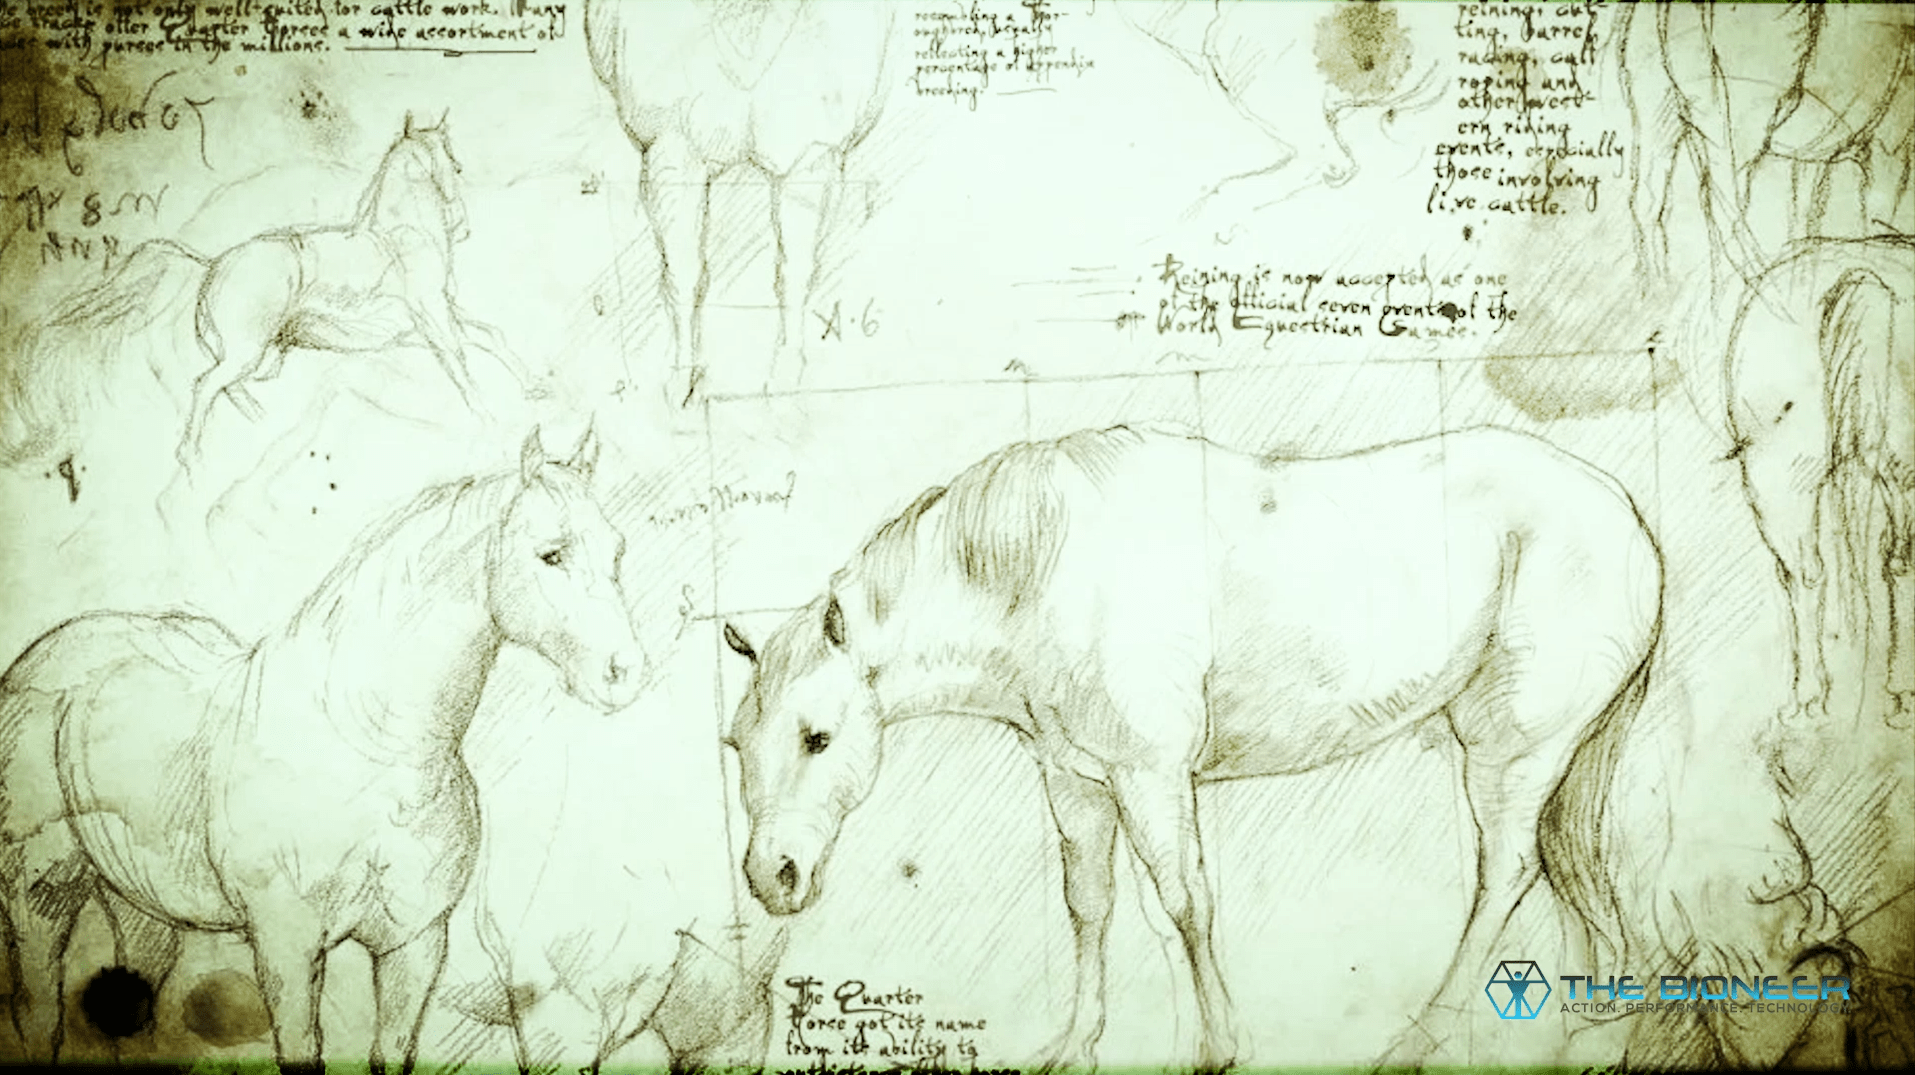 he breed is not only well-suited for cattle work. Many
ce tracks offer Quarter Horses a wide assortment of
aces with purses in the millions.
resembling a Thor-
oughbred, usually
reflecting a higher
percentage of appendix
breeding.
reining, cut-
ting, barrel
racing, calf
roping and
other west-
ern riding
events, especially
those involving
live cattle.
A.6
Reining is now accepted as one
of the official seven events of the
World Equestrian Games.
The Quarter
Horse got its name
from its ability to
outdistance other horse
THE BIONEER
ACTION. PERFORMANCE. TECHNOLOGY.